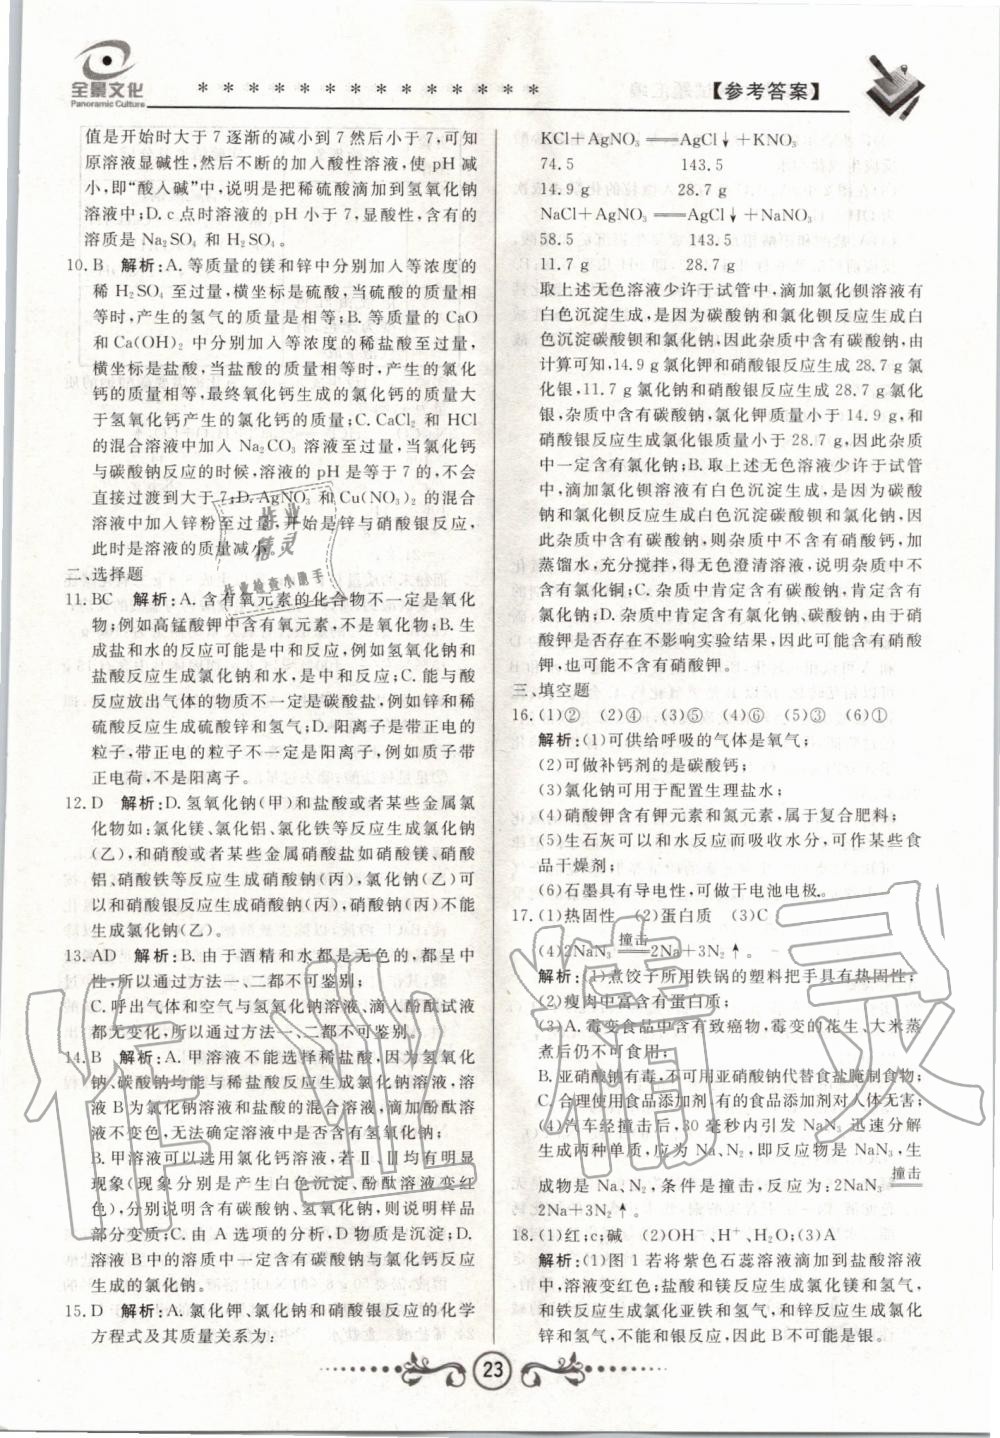 全景文化
Panoramic Culture
* * * * * * * * * * * * * * * *
【参考答案】
值是开始时大于 7 逐渐的减小到 7 然后小于 7,可知
原溶液显碱性,然后不断的加入酸性溶液,使 pH 减
小,即“酸入碱”中,说明是把稀硫酸滴加到氢氧化钠
溶液中;D. c 点时溶液的 pH 小于 7,显酸性,含有的
溶质是 Na₂SO₄ 和 H₂SO₄。
10. B 解析:A. 等质量的镁和锌中分别加入等浓度的
稀 H₂SO₄ 至过量,横坐标是硫酸,当硫酸的质量相
等时,产生的氢气的质量是相等;B. 等质量的 CaO
和 Ca(OH)₂ 中分别加入等浓度的稀盐酸至过量,
横坐标是盐酸,当盐酸的质量相等时,产生的氯化
钙的质量相等,最终氧化钙生成的氯化钙的质量大
于氢氧化钙产生的氯化钙的质量;C. CaCl₂ 和 HCl
的混合溶液中加入 Na₂CO₃ 溶液至过量,当氯化钙
与碳酸钠反应的时候,溶液的 pH 是等于 7 的,不会
直接过渡到大于 7;D. AgNO₃ 和 Cu(NO₃)₂ 的混合
溶液中加入锌粉至过量,开始是锌与硝酸银反应,
此时是溶液的质量减小。
二、选择题
11. BC 解析:A. 含有氧元素的化合物不一定是氧化
物;例如高锰酸钾中含有氧元素,不是氧化物;B. 生
成盐和水的反应可能是中和反应,例如氢氧化钠和
盐酸反应生成氯化钠和水,是中和反应;C. 能与酸
反应放出气体的物质不一定是碳酸盐,例如锌和稀
硫酸反应生成硫酸锌和氢气;D. 阳离子带正电的
粒子,带正电的粒子不一定是阳离子,例如质子带
正电荷,不是阳离子。
12. D 解析:D. 氢氧化钠(甲)和盐酸或者某些金属氯
化物如:氯化镁、氯化铝、氯化铁等反应生成氯化钠
(乙),和硝酸或者某些金属硝酸盐如硝酸镁、硝酸
铝、硝酸铁等反应生成硝酸钠(丙),氯化钠(乙)可
以和硝酸银反应生成硝酸钠(丙),硝酸钠(丙)不能
生成氯化钠(乙)。
13. AD 解析:B. 由于酒精和水都是无色的,都呈中
性,所以通过方法一、二都不可鉴别;
C. 呼出气体和空气与氢氧化钠溶液、滴入酚酞试液
都无变化,所以通过方法一、二都不可鉴别。
14. B 解析:A. 甲溶液不能选择稀盐酸,因为氢氧化
钠、碳酸钠均能与稀盐酸反应生成氯化钠溶液,溶
液 B 为氯化钠溶液和盐酸的混合溶液,滴加酚酞溶
液不变色,无法确定溶液中是否含有氢氧化钠;
B. 甲溶液可以选用氯化钙溶液,若Ⅱ、Ⅲ均有明显
现象(现象分别是产生白色沉淀、酚酞溶液变红
色),分别说明含有碳酸钠、氢氧化钠,则说明样品
部分变质;C. 由 A 选项的分析,D 物质是沉淀;D.
溶液 B 中的溶质中一定含有碳酸钠与氯化钙反应
生成的氯化钠。
15. D 解析:A. 氯化钾、氯化钠和硝酸银反应的化学
方程式及其质量关系为:
KCl+AgNO₃══AgCl↓+KNO₃
74.5 143.5
14.9 g 28.7 g
NaCl+AgNO₃══AgCl↓+NaNO₃
58.5 143.5
11.7 g 28.7 g
取上述无色溶液少许于试管中,滴加氯化钡溶液有
白色沉淀生成,是因为碳酸钠和氯化钡反应生成白
色沉淀碳酸钡和氯化钠,因此杂质中含有碳酸钠,由
计算可知,14.9 g 氯化钾和硝酸银反应生成 28.7 g 氯
化银,11.7 g 氯化钠和硝酸银反应生成 28.7 g 氯化
银,杂质中含有碳酸钠,氯化钾质量小于 14.9 g,和
硝酸银反应生成氯化银质量小于 28.7 g,因此杂质
中一定含有氯化钠;B. 取上述无色溶液少许于试管
中,滴加氯化钡溶液有白色沉淀生成,是因为碳酸
钠和氯化钡反应生成白色沉淀碳酸钡和氯化钠,因
此杂质中含有碳酸钠,则杂质中不含有氯化钙,加
蒸馏水,充分搅拌,得无色澄清溶液,说明杂质中不
含有氯化铜;C. 杂质中一定含有碳酸钠,一定含有
氯化钠;D. 杂质中一定含有氯化钠、碳酸钠,由于硝
酸钾是否存在不影响实验结果,因此可能含有硝酸
钾,也可能不含有硝酸钾。
三、填空题
16. (1)② (2)④ (3)⑤ (4)⑥ (5)③ (6)①
解析:(1)可供给呼吸的气体是氧气;
(2)可做补钙剂的是碳酸钙;
(3)氯化钠可用于配置生理盐水;
(4)硝酸钾含有钾元素和氮元素,属于复合肥料;
(5)生石灰可以和水反应而吸收水分,可作某些食
品干燥剂;
(6)石墨具有导电性,可做干电池电极。
17. (1)热固性 (2)蛋白质 (3)C
(4)2NaN₃ 撞击══ 2Na+3N₂↑
解析:(1)煮饺子所用铁锅的塑料把手具有热固性;
(2)瘦肉中富含有蛋白质;
(3)A. 霉变食品中含有致癌物,霉变的花生、大米蒸
煮后仍不可食用;
B. 亚硝酸钠有毒,不可用亚硝酸钠代替食盐腌制食物;
C. 合理使用食品添加剂,有的食品添加剂对人体无害;
(4)汽车经撞击后,30 毫秒内引发 NaN₃ 迅速分解
生成两种单质,应为 Na、N₂,即反应物是 NaN₃,生
成物是 Na、N₂,条件是撞击,反应为:2NaN₃ 撞击══
2Na+3N₂↑。
18. (1)红;c;碱 (2)OH⁻、H⁺、H₂O;(3)A
解析:(1)图 1 若将紫色石蕊溶液滴加到盐酸溶液
中,溶液变红色;盐酸和镁反应生成氯化镁和氢气,
和铁反应生成氯化亚铁和氢气,和锌反应生成氯化
锌和氢气,不能和银反应,因此 B 不可能是银。
23
作业精灵
作业检查小助手
作业精灵